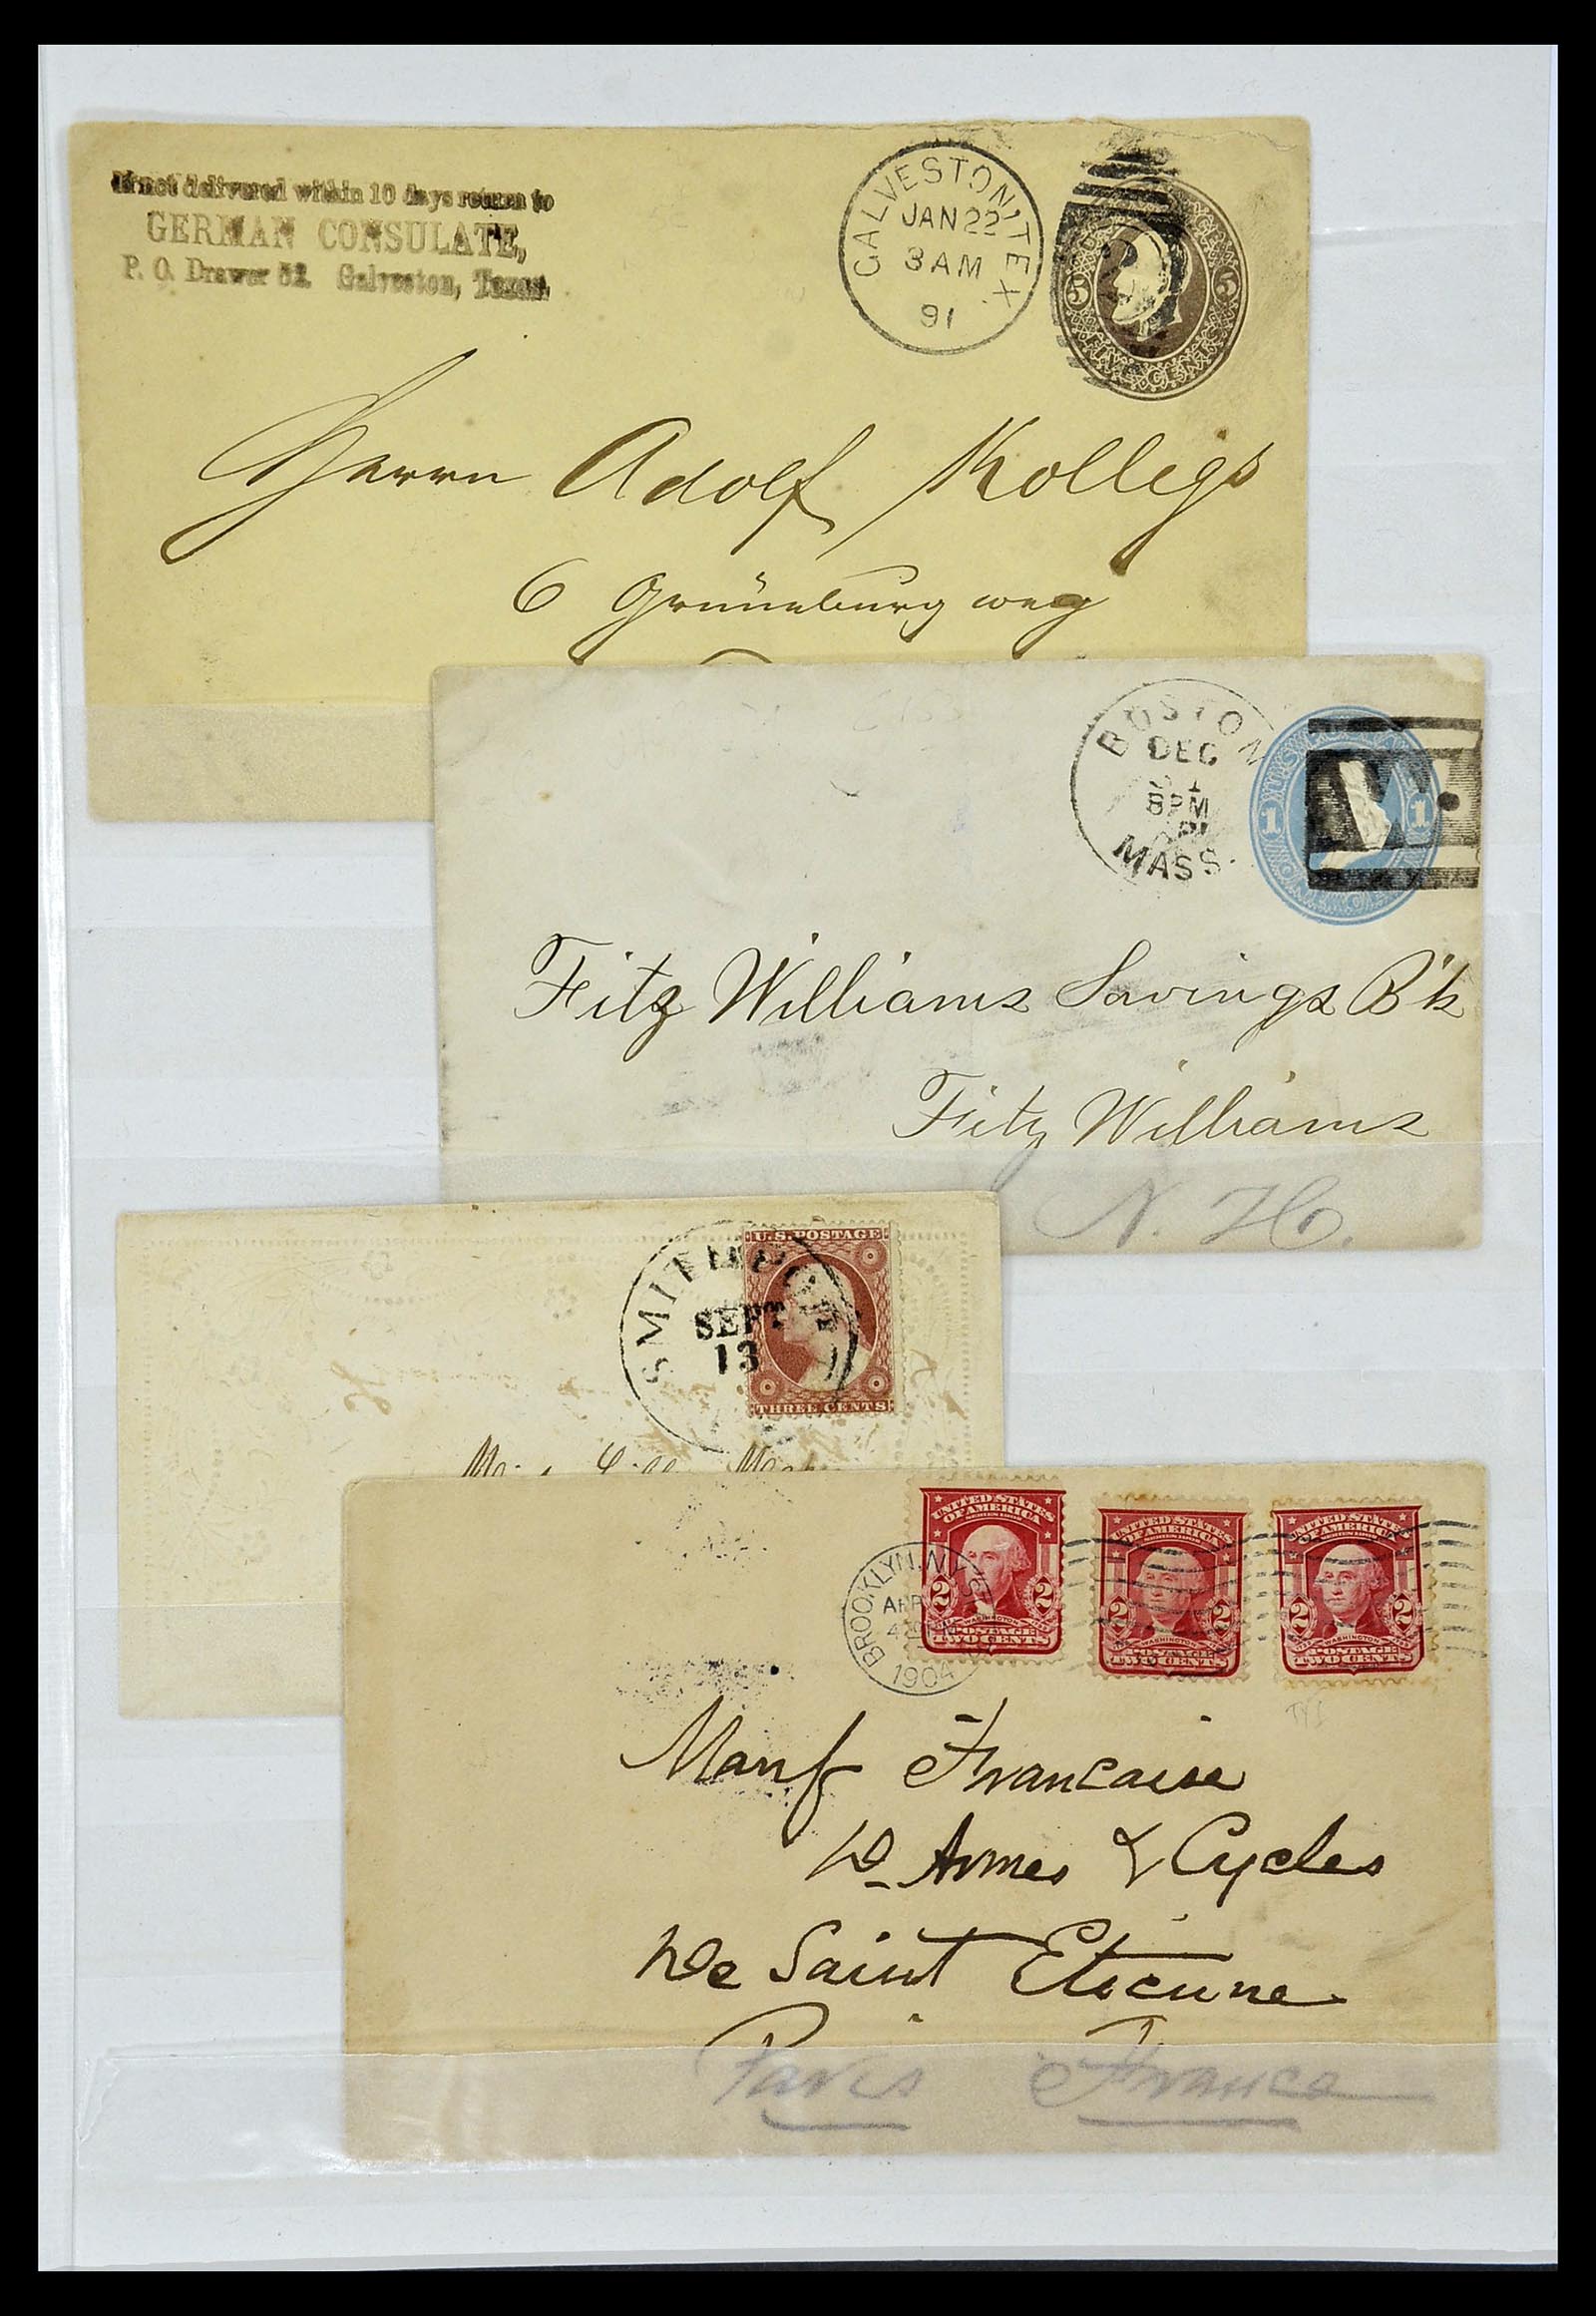 If not delivered within 10 days return to
GERMAN CONSULATE,
P. O. Drawer 52. Galveston, Texas.
GALVESTON, TEX.
JAN 22
3 AM
91
5 5
FIVE CENTS
Herrn Adolf Kolligs
6 Grüneburgweg
BOSTON
DEC
8PM
MASS.
1 1
Fitz Williams Savings B'k
Fitz Williams
N. H.
SMITH
SEPT
13
U.S. POSTAGE
THREE CENTS
UNITED STATES
OF AMERICA
SERIES 1902
2 2
WASHINGTON
POSTAGE
TWO CENTS
UNITED STATES
OF AMERICA
SERIES 1902
2 2
WASHINGTON
POSTAGE
TWO CENTS
UNITED STATES
OF AMERICA
SERIES 1902
2 2
WASHINGTON
POSTAGE
TWO CENTS
BROOKLYN, N.Y.
APR
4
1904
TYI
Manf Francaise
D Armes & Cycles
De Saint Etienne
Paris France